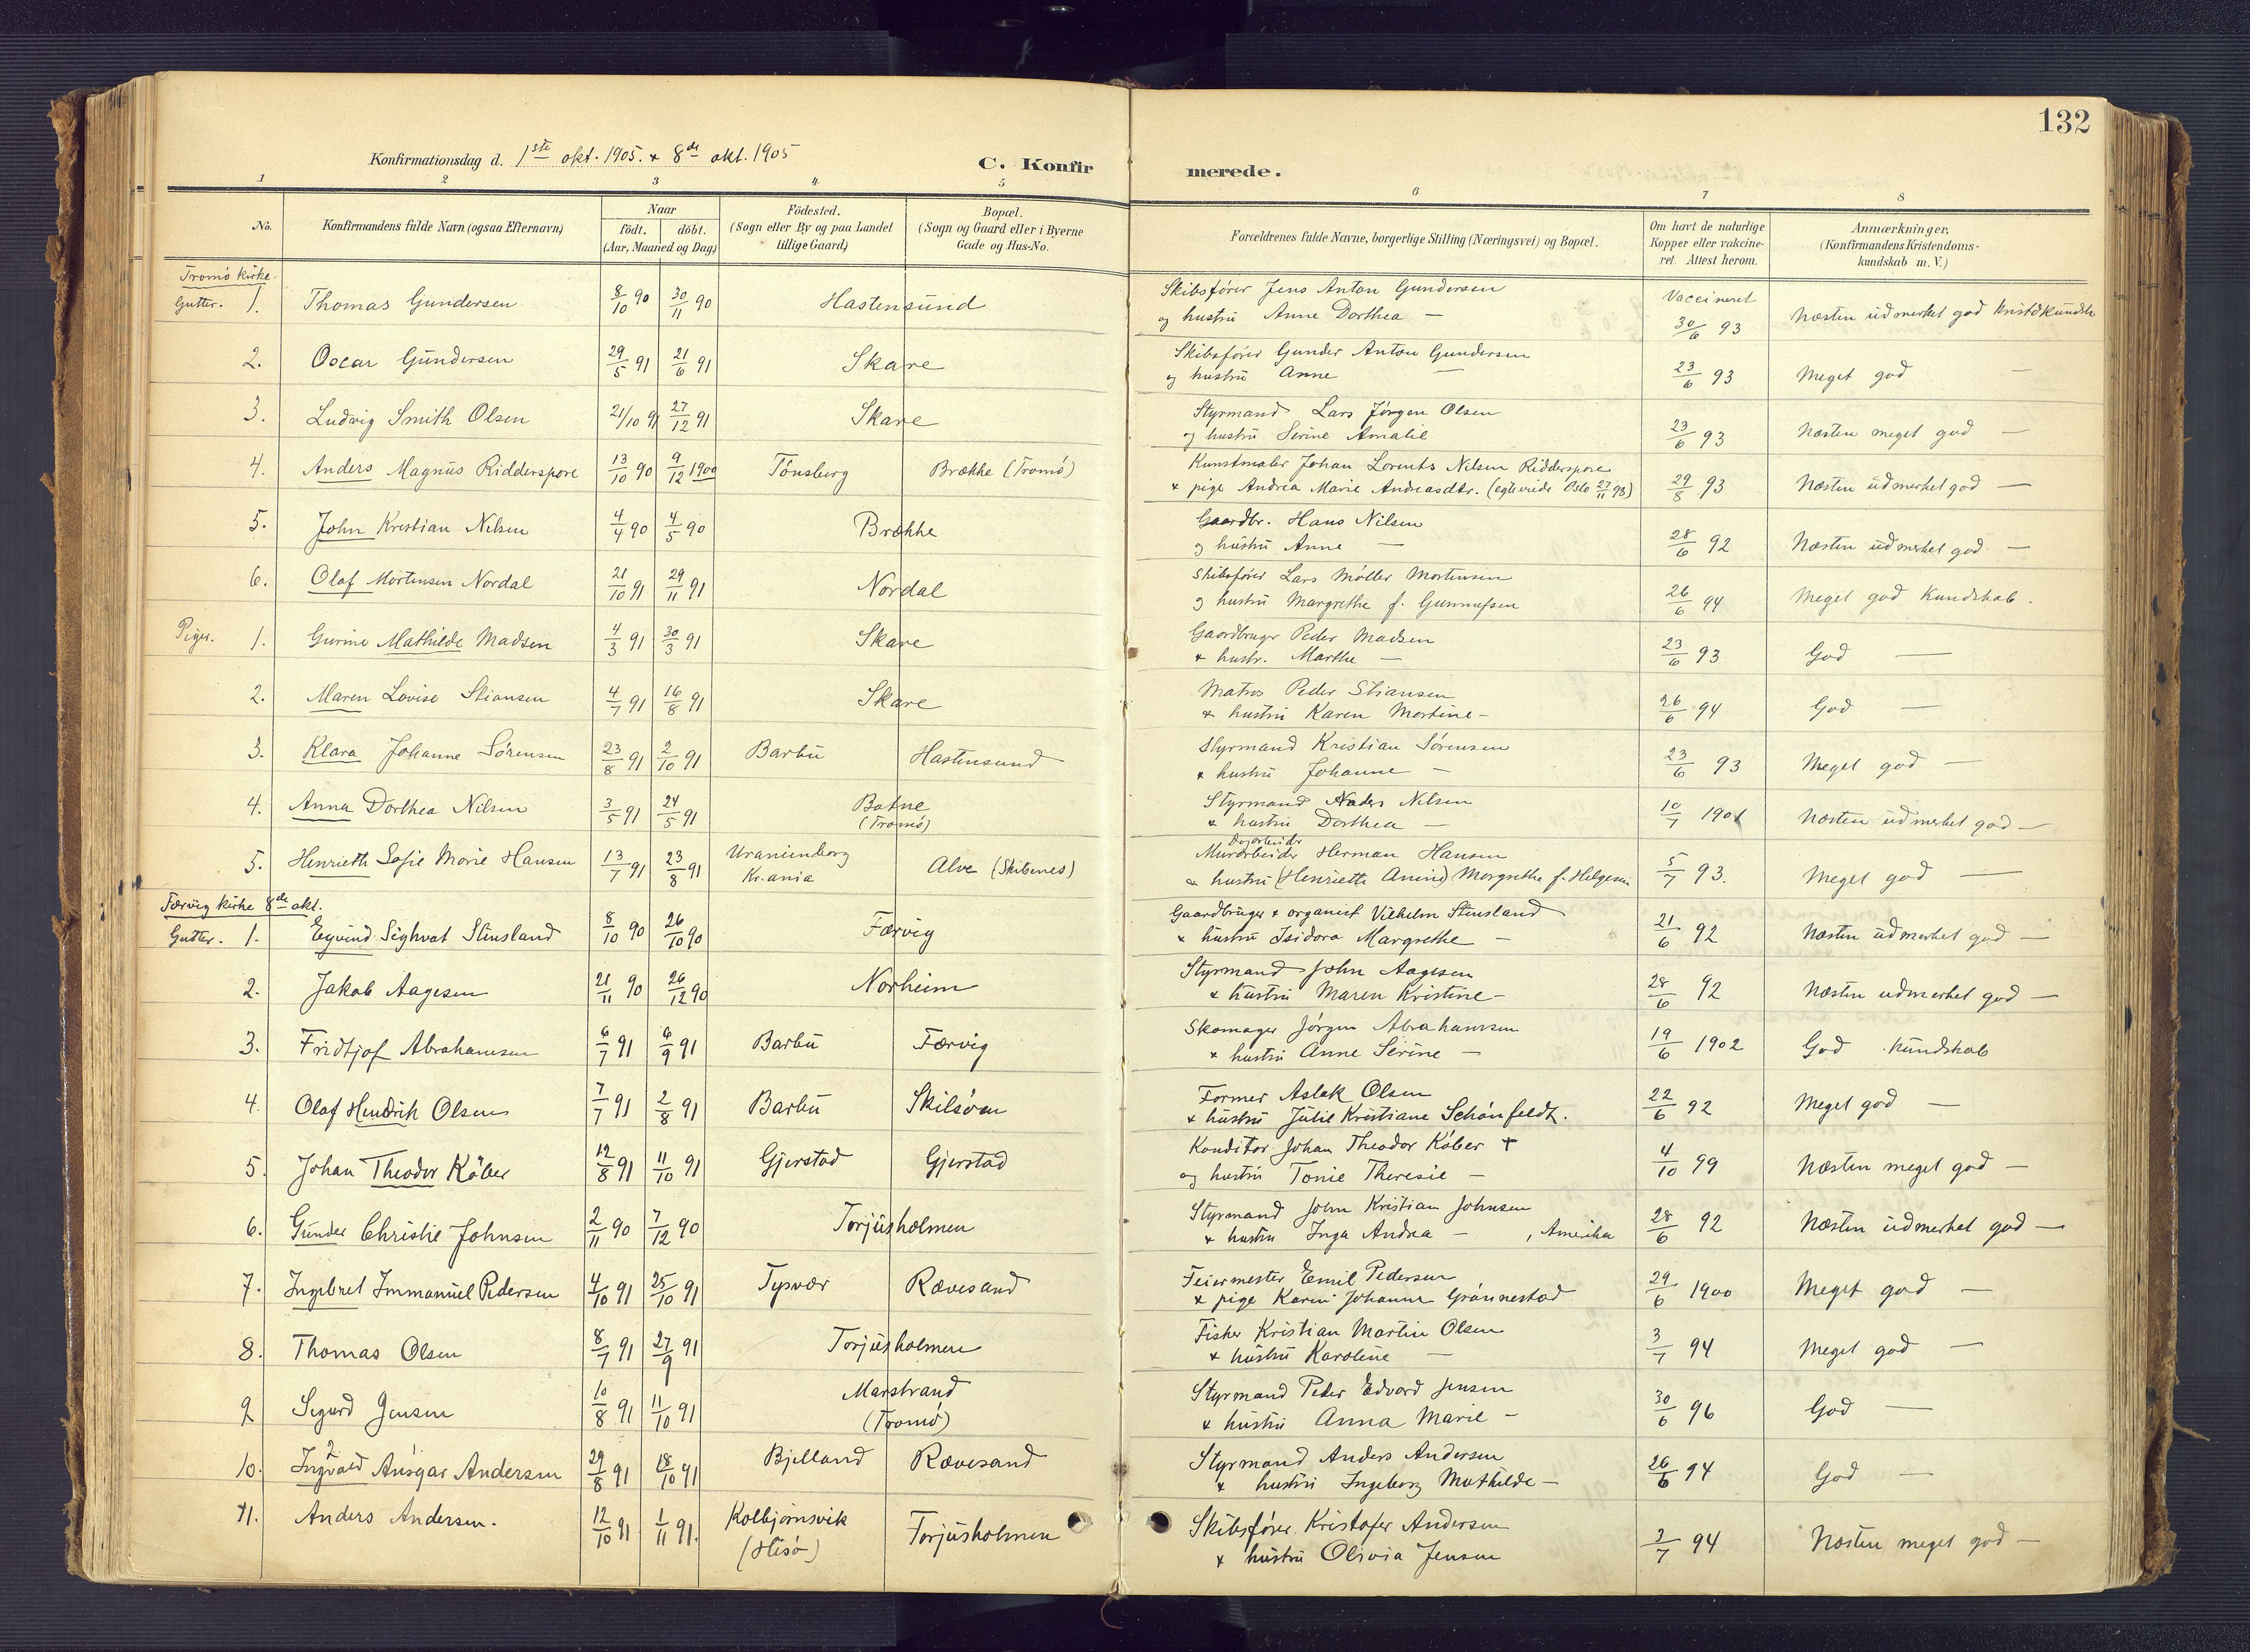 132
Konfirmationsdag d. 1ste okt. 1905. & 8de okt. 1905
C. Konfirmerede.
1 2 3 4 5 6 7 8
No.
Konfirmandens fulde Navn (ogsaa Efternavn)
Naar
födt. döbt.
(Aar, Maaned og Dag)
Födested.
(Sogn eller By og paa Landet
tillige Gaard)
Bopæl.
(Sogn og Gaard eller i Byerne
Gade og Hus-No.
Forældrenes fulde Navne, borgerlige Stilling (Næringsvei) og Bopæl.
Om havt de naturlige
Kopper eller vakcine-
ret. Attest herom.
Anmærkninger,
(Konfirmandens Kristendoms-
kundskab m. V.)
Tromö kirke.
Gutter. 1. Thomas Gundersen 8/10 90 30/11 90 Hastensund Skibsförer Jens Anton Gundersen
og hustru Anne Dorthea — Vaccineret 30/6 93 Næsten udmerket god
2. Oscar Gundersen 29/5 91 21/6 91 Skare Skibsförer Gunder Anton Gundersen
og hustru Anne — 23/6 93 Meget god —
3. Ludvig Smith Olsen 21/10 91 27/12 91 Skare Styrmand Lars Jörgen Olsen
og hustru Serine Amalie 23/6 93 Næsten meget god —
4. Anders Magnus Ridderspore 13/10 90 9/12 1900 Tönsberg Brække (Tromö) Kunstmaler Johan Lorents Nilsen Ridderspore
& pige Andrea Marie Andreasdtr. (egteviede Oslo 27/11 98) 29/8 93 Næsten udmerket god —
5. John Kristian Nilsen 4/4 90 4/5 90 Brække Gaardbr. Hans Nilsen
og hustru Anne — 28/6 92 Næsten udmerket god —
6. Olaf Mortensen Nordal 21/10 91 29/11 91 Nordal Skibsförer Lars Möller Mortensen
og hustru Margrethe f. Gunnufsen 26/6 94 Meget god Kundskab.
Piger. 1. Gurine Mathilde Madsen 4/3 91 30/3 91 Skare Gaardbruger Peder Madsen
& hustr. Marthe — 23/6 93 God —
2. Maren Lovise Stiansen 4/7 91 16/8 91 Skare Matros Peder Stiansen
& hustru Karen Mortine — 26/6 94 God —
3. Klara Johanne Sörensen 23/8 91 2/10 91 Barbu Hastensund Styrmand Kristian Sörensen
& hustru Johanne — 23/6 93 Meget god —
4. Anna Dorthea Nilsen 3/5 91 24/5 91 Botne
(Tromö) Styrmand Anders Nilsen
& hustru Dorthea — 10/7 1901 Næsten udmerket god —
5. Henrieth Sofie Marie Hansen 13/7 91 23/8 91 Uranienborg
Kr.ania Alve (Skibenes) Murarbeider Herman Hansen
& hustru (Henriette Amine) Margrethe f. Helgesen 5/7 93. Meget god —
Færvig kirke 8de okt.
Gutter. 1. Eyvind Sighvat Stensland 8/10 90 26/10 90 Færvig Gaardbruger & organist Vilhelm Stensland
& hustru Isidora Margrethe — 21/6 92 Næsten udmerket god —
2. Jakob Aagesen 21/11 90 26/12 90 Norheim Styrmand John Aagesen
& hustru Maren Kristine — 28/6 92 Næsten udmerket god —
3. Fridtjof Abrahamsen 6/7 91 6/9 91 Barbu Færvig Skomager Jörgen Abrahamsen
& hustru Anne Serine — 19/6 1902 God kundskab
4. Olaf Hendrik Olsen 7/7 91 2/8 91 Barbu Skilsöen Former Aslak Olsen
& hustru Julie Kristiane Schönfeldt. 22/6 92 Meget god —
5. Johan Theodor Köber 12/8 91 11/10 91 Gjerstad Gjerstad Konditor Johan Theodor Köber +
og hustru Tonie Theresie — 4/10 99 Næsten meget god —
6. Gunder Christie Johnsen 2/11 90 7/12 90 Torjusholmen Styrmand John Kristian Johnsen
& hustru Inga Andrea — , Amerika 28/6 92 Næsten udmerket god —
7. Ingebret Immanuel Pedersen 4/10 91 25/10 91 Tysvær Rævesand Feiermester Emil Pedersen
& pige Karen Johanne Grönnestad 29/6 1900 Meget god —
8. Thomas Olsen 8/7 91 27/9 91 Torjusholmen Fisker Kristian Martin Olsen
& hustru Karoline — 3/7 94 Meget god —
9 Sigurd Jensen 10/8 91 11/10 91 Marstrand
(Tromö) Styrmand Peder Edvard Jensen
& hustru Anna Marie — 30/6 96 God —
10. Ingvald Ansgar Andersen 29/8 91 18/10 91 Bjelland Rævesand Styrmand Anders Andersen
& hustru Ingeborg Mathilde — 26/6 94 God —
11. Anders Andersen. 12/10 91 1/11 91. Kolbjörnsvik
(Hisö) Torjusholmen Skibsförer Kristofer Andersen
& hustru Olivia Jensen 3/7 94 Næsten meget god —